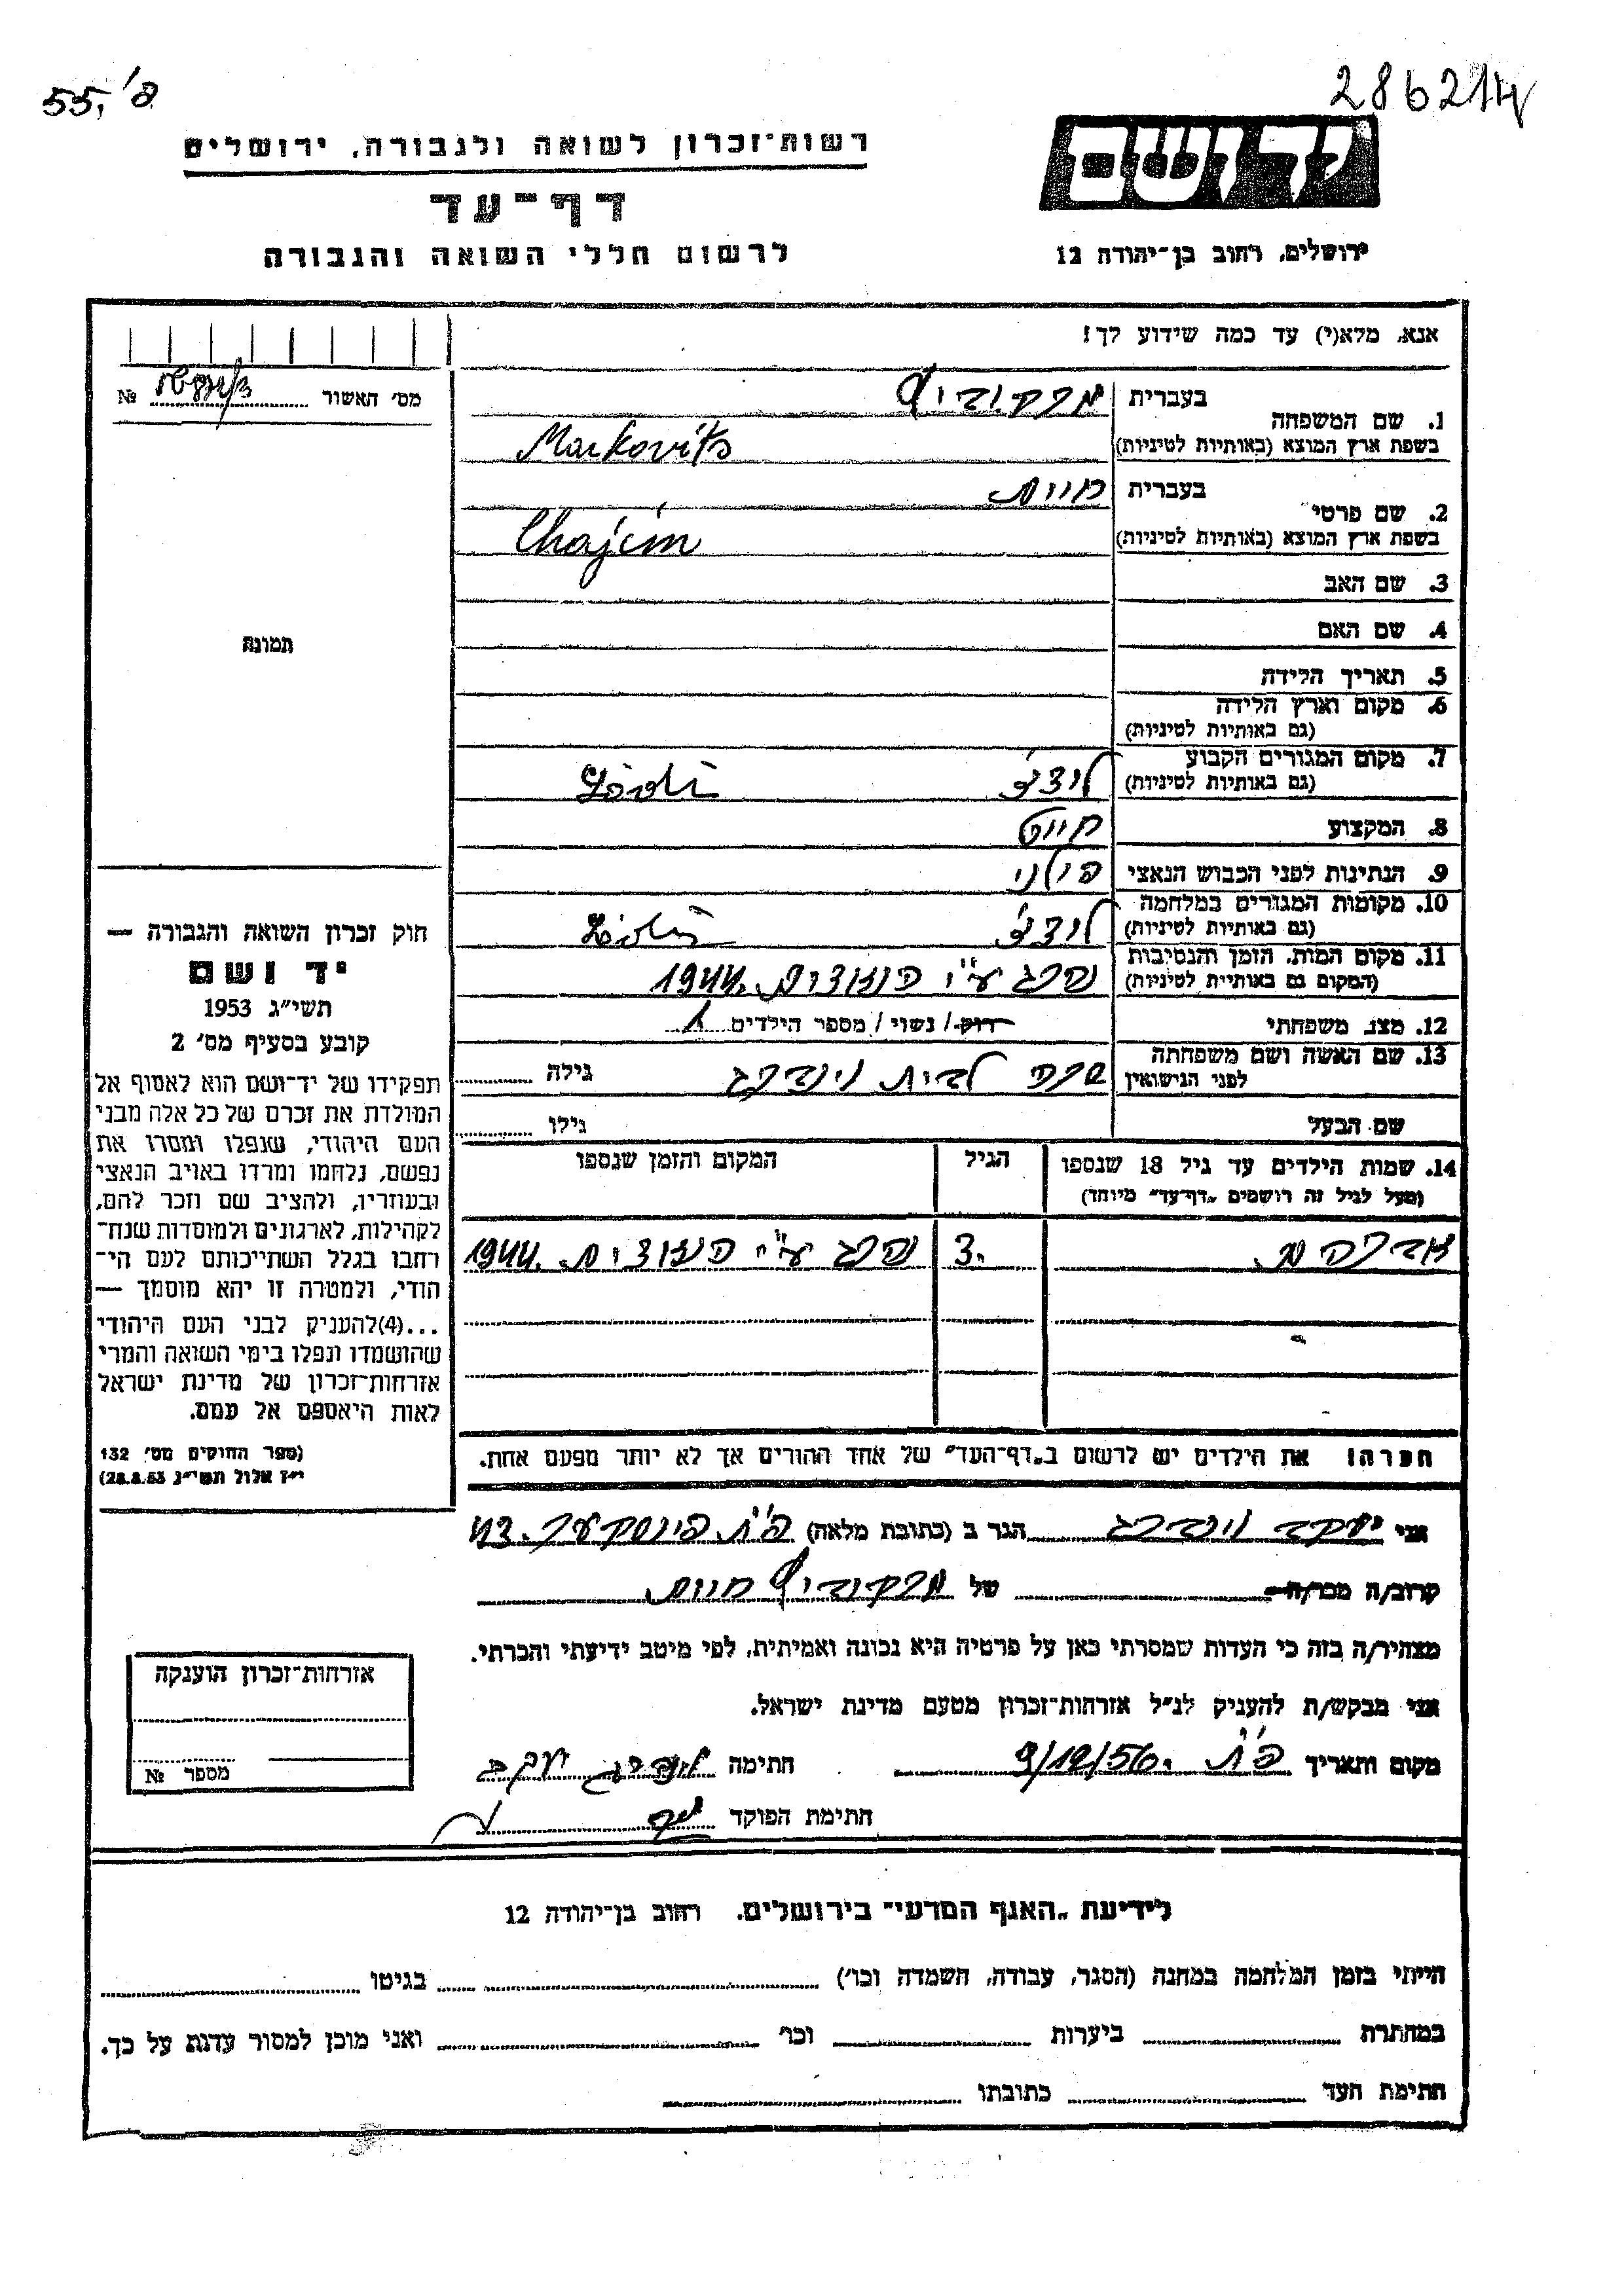 55, פ'
286214
רשות-זכרון לשואה ולגבורה, ירושלים
דף-עד
לרשום חללי השואה והגבורה
יד ושם
ירושלים, רחוב בן-יהודה 12
אנא, מלא(י) עד כמה שידוע לך!
מס' האשור № 
1. שם המשפחה
בעברית מרקוביץ
בשפת ארץ המוצא (באותיות לטיניות) Markovits
2. שם פרטי
בעברית חיים
בשפת ארץ המוצא (באותיות לטיניות) Chajim
3. שם האב
4. שם האם
5. תאריך הלידה
6. מקום וארץ הלידה
(גם באותיות לטיניות)
7. מקום המגורים הקבוע לודז'
(גם באותיות לטיניות)
8. המקצוע חייט
9. הנתינות לפני הכבוש הנאצי פולני
10. מקומות המגורים במלחמה לודז'
(גם באותיות לטיניות)
11. מקום המות, הזמן והנסיבות נהרג ע"י הנאצים. 1944
(המקום גם באותיות לטיניות)
12. מצב משפחתי רוק / נשוי / מספר הילדים 1
13. שם האשה ושם משפחתה שרה לבית וינברג גילה
לפני הנישואין
שם הבעל גילו
14. שמות הילדים עד גיל 18 שנספו הגיל המקום והזמן שנספו
(מעל לגיל זה רושמים "דף-עד" מיוחד)
אברהם. 3. נהרג ע"י הנאצים. 1944
הערה! את הילדים יש לרשום ב"דף-העד" של אחד ההורים אך לא יותר מפעם אחת.
תמונה
חוק זכרון השואה והגבורה —
יד ושם
תשי"ג 1953
קובע בסעיף מס' 2
תפקידו של יד-ושם הוא לאסוף אל
המולדת את זכרם של כל אלה מבני
העם היהודי, שנפלו ומסרו את
נפשם, נלחמו ומרדו באויב הנאצי
ובעוזריו, ולהציב שם וזכר להם,
לקהילות, לארגונים ולמוסדות שנח-
רחבו בגלל השתייכותם לעם הי-
הודי, ולמטרה זו יהא מוסמך —
...(4)להעניק לבני העם היהודי
שהושמדו ונפלו בימי השואה והמרי
אזרחות-זכרון של מדינת ישראל
לאות היאספם אל עמם.
(ספר החוקים מס' 132
י"ז אלול תשי"ג 28.8.53)
אני יעקב וינברג הגר ב (כתובת מלאה) פ"ת פינסקער
קרוב/ה מכר/ה של מרקוביץ חיים
מצהיר/ה בזה כי העדות שמסרתי כאן על פרטיה היא נכונה ואמיתית, לפי מיטב ידיעתי והכרתי.
אני מבקש/ת להעניק לנ"ל אזרחות-זכרון מטעם מדינת ישראל.
מקום ותאריך פ"ת. 9/12/56 חתימה
חתימת הפוקד
אזרחות-זכרון הוענקה
מספר №
לידיעת "האגף המדעי" בירושלים, רחוב בן-יהודה 12
הייתי בזמן המלחמה במחנה (הסגר, עבודה, השמדה וכו') בגיטו
במחתרת ביערות וכו' ואני מוכן למסור עדות על כך.
חתימת העד כתובתו